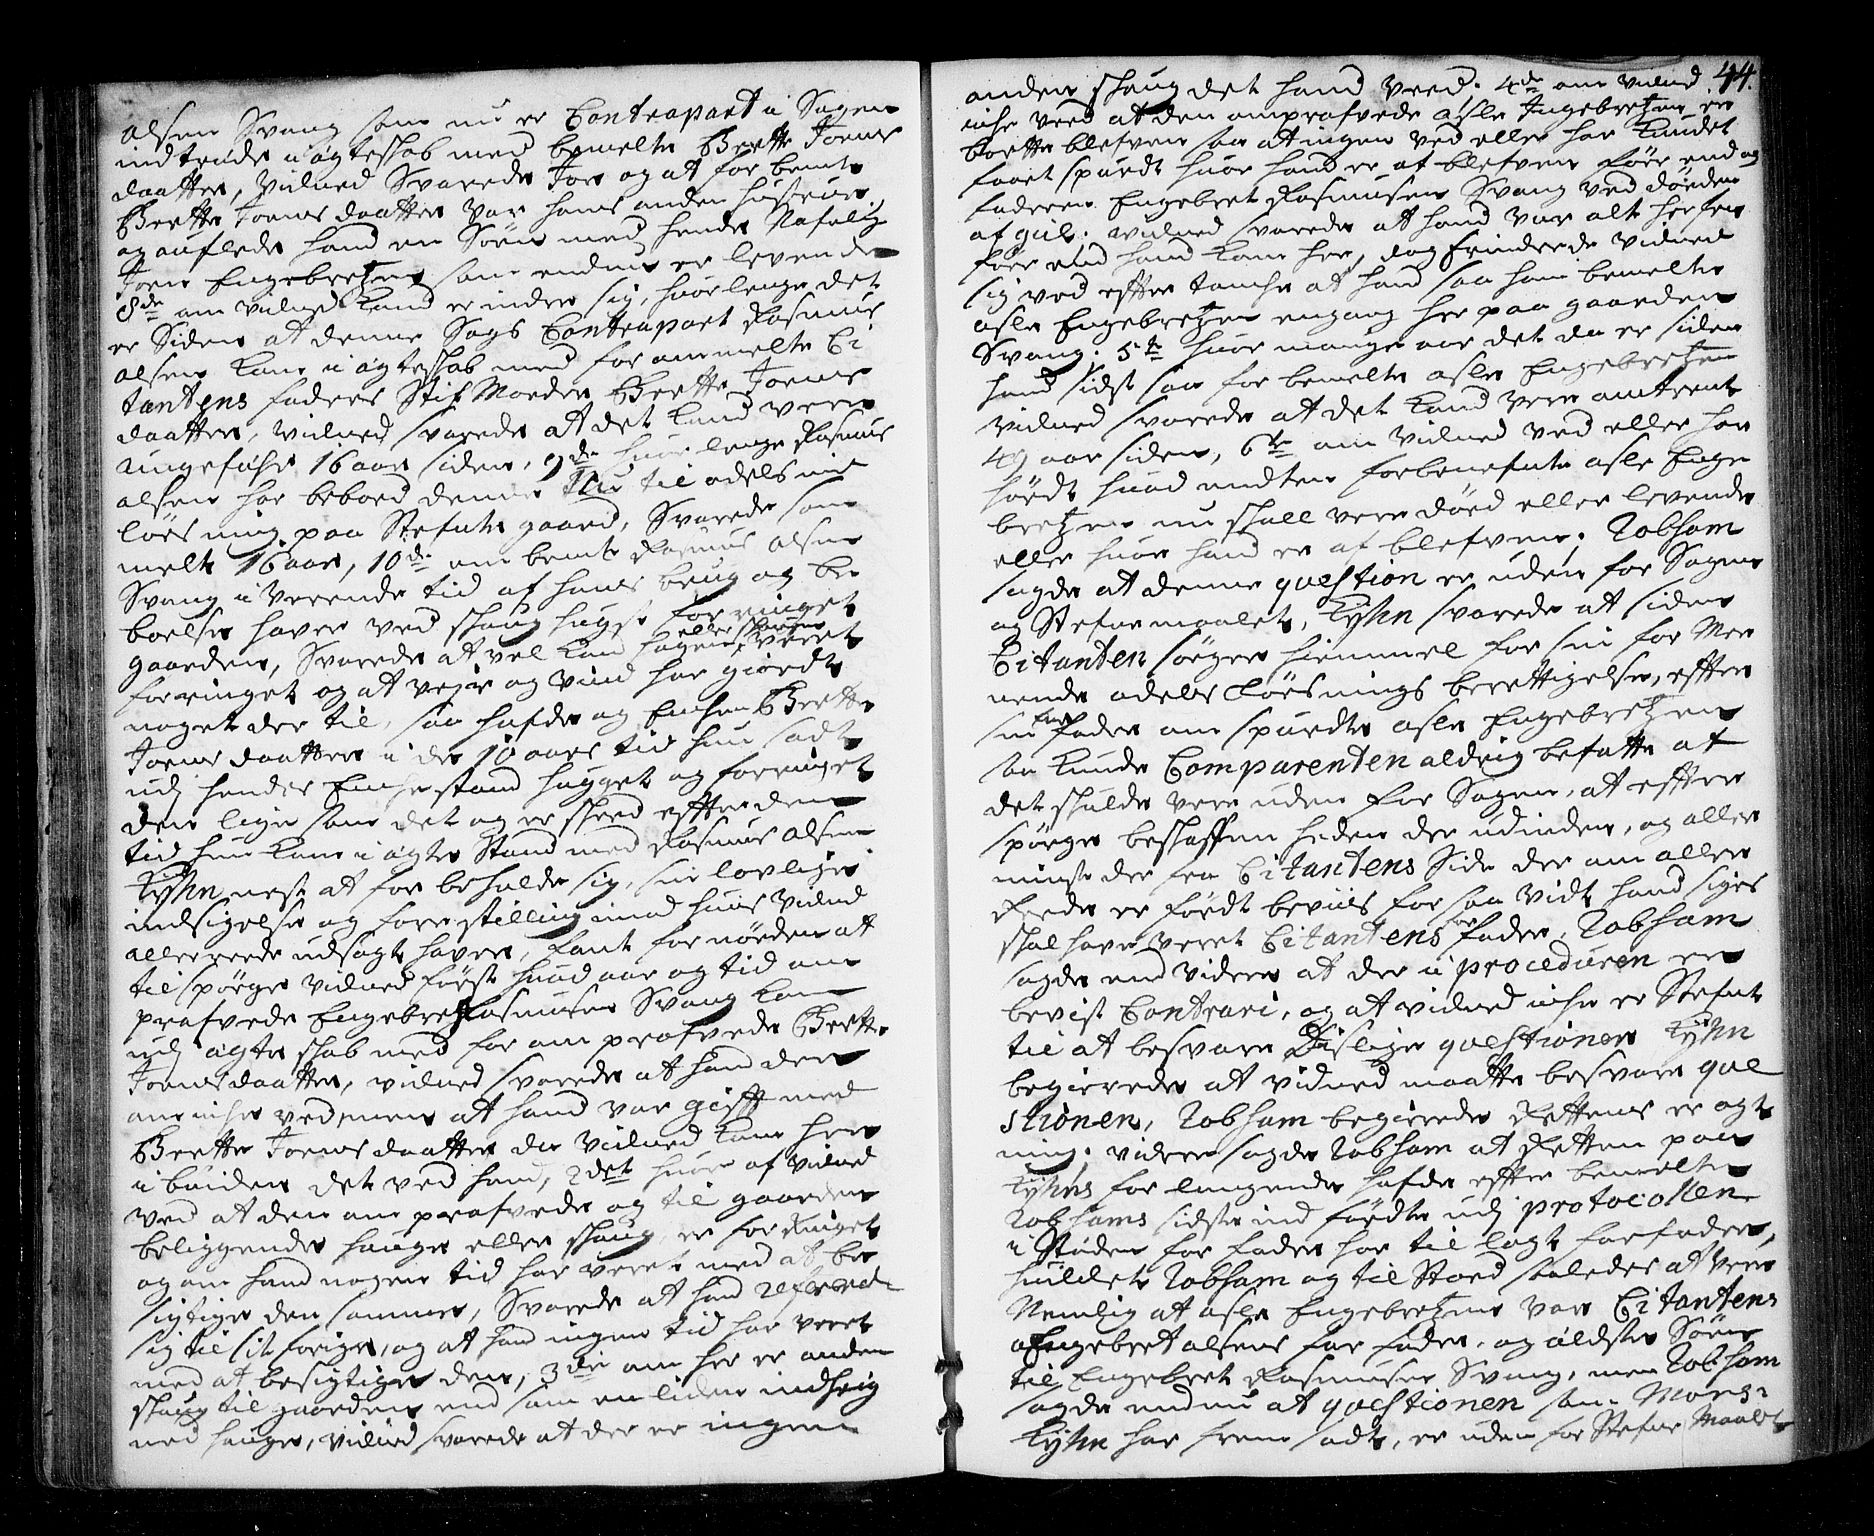 olsen Svang som nu er Contrapart i Sagen
indtrede i ægteskab med bemelte Berette Joens
daatter, vidned Svarede Joe og at for bemte
Berette Joensdaatter var hans anden hustrue
og auflede hand en Søn med hende Nafnlig
Joen Engebretzen som endnu er levende
8de om vidned kand erindre sig, huor lenge det
er Siden at denne Sags Contrapart Rasmus
olsen kom i ægteskab med for ommelte Ci
tantens faders Stif Moeder Berette Joens
daatter, vidned svarede at det kand vere
ungefehr 16 aar siden, 9de huor lenge Rasmus
olsen har beboed denne nu til odels ind
løesning paa Stefnte gaard, Svarede som
melt 16 aar, 10de om bemte Rasmus olsen
Svang i Verende tid af hans brug og be
boelse haver ved skoug hugst forringet
gaarden, Svarede at vel kand hagen eller skougen veret
forringet og at vejr og vind har giordt
noget der til, saa hafde og Enken Berette
Joens daatter i de 10 aars tid hun sadt
udj hendes Enkestand hugget og forringet
den lige som det og er skeed efter den
tid hun kom i ægte Stand med Rasmus olsen
Kyhn nest at for beholde sig, sin lovlige
indsigelse og forestilling imod huis vidned
allereede udsagt haver, fant for nøden at
tilspørge vidned først huad aar og tid om
profvede Engebret Rasmusen Svang kom
udj ægte skab med for om profvede Berette
Joensdaatter, vidned svarede at hand der
om iche ved, men at hand var gift med
Berette Joensdaatter da vidned kom her
i buiden det ved hand, 2det huor af vidned
ved at den om profvede og til gaarden
beliggende hauge eller skoug er for Ringet
og om hand nogen tid har veret med at be
sigtige den samme, Svarede at hand refererede
sig til sit forige, og at hand ingen tid har veret
med at besigtige den, 3die om her er anden
skoug til gaarden end som en liden indheig
ned hauge, vidned svarede at der er ingen
44.
anden skoug det hand veed. 4de om vidned
iche veed at den omprofvede Asle Ingebretzen er
borte blefven saa at ingen ved eller har kundet
faaet spurdt huor hand er af blefven før end og
faderen Engebret Rasmusen Svang ved døden
afgik. vidned svarede at hand var alt herfra
før end hand kom her, dog Erindrede vidned
sig ved efter tanche at hand saa ham bemelte
Asle Engebretzen engang her paa gaarden
Svang; 5te huor mange aar det da er siden
hand sidst saa for bemelte Asle Engebretzen
vidned svarede at det kand vere omtrent
49 aar siden, 6te om vidned ved eller har
hørdt huad endten forbenefnte Asle Enge
bretzen nu skall vere død eller levende
eller huor hand er af blefven. Robsam
sagde at denne question er uden for Sagen
og Stefnemaalet, Kyhn svarede at siden
Citanten søger hiemmel for sin for Mee
nende odels Løesnings berettigelse, efter
sin far fader om spurdte Asle Engebretzen
saa kunde Comparenten aldrig befatte at
det skulde vere uden for Sagen, at efter
spørge beskaffenheden der udinden, og aller
minst der fra Citantens Side der om aller
Rede er ført beviis for saa vidt hand siges
skal have veret Citantens far fader, Robsam
sagde end videre at der i proceduren er
bevist Contrari, og at vidned iche er Stefnt
til at besvare dislige questioner Kyhn
begierede at vidned maatte besvare que
stionen, Robsam begierede Rettens er agt
ning; videre sagde Robsam at Retten paa
Kyhns for langende hafde efter bemelte
Robsams sidste ind førdte udj protocollen
i Støden for fader har til lagt farfader,
huilcket Robsam og til Stoed saaledes at vere
Nemlig at Asle Engebretzen var Citantens
Engebret olsens far fader, og ældste Søn
til Engebret Rasmusen Svang, men Robsam
sagde endnu at questionen som Mons:
Kyhn har frem sadt, er uden for Stefne Maalet